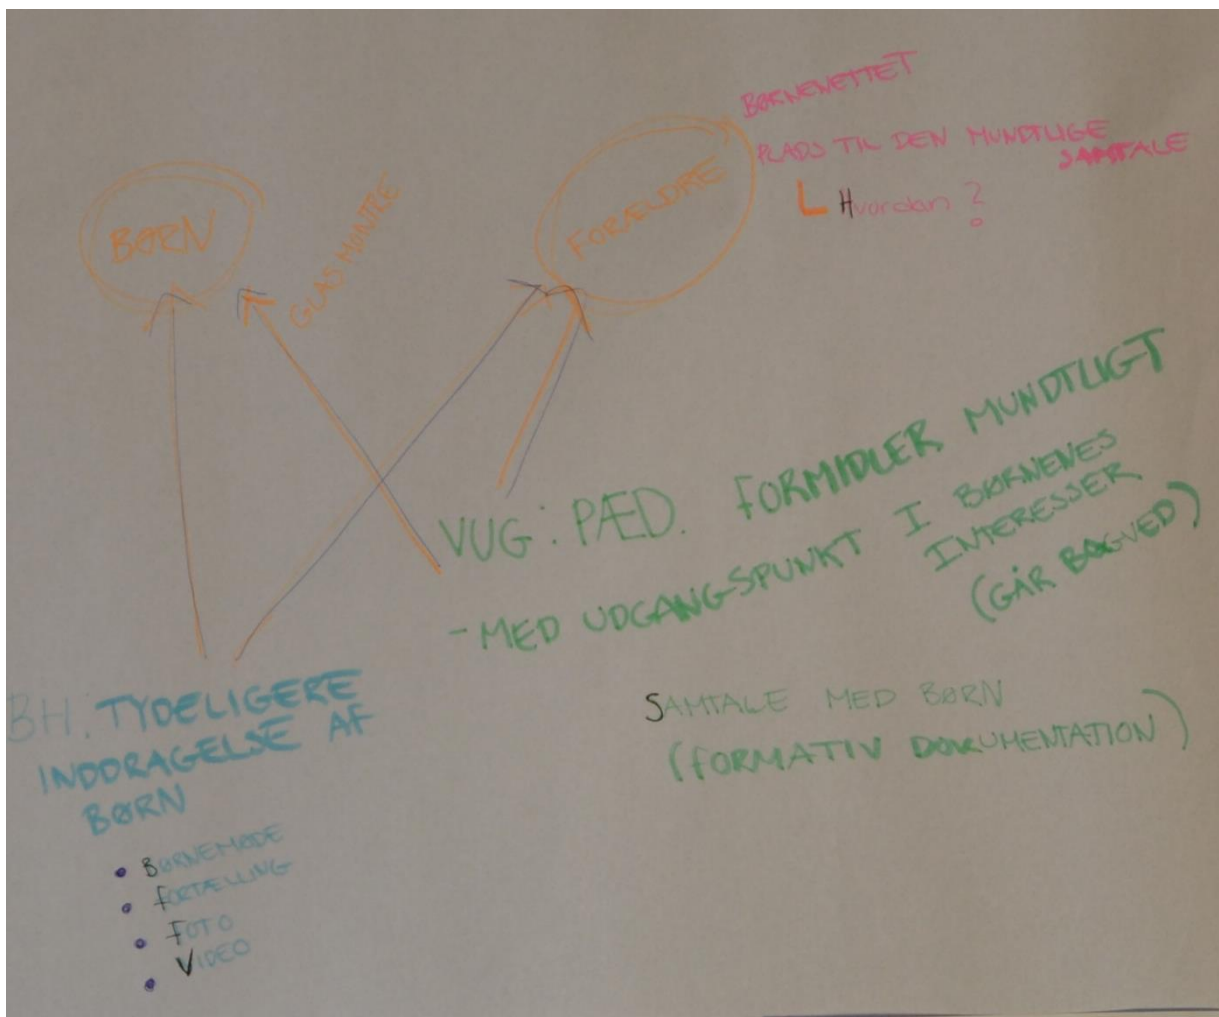 BØRNENETTET
PLADS TIL DEN MUNDTLIGE
SAMTALE
Hvordan ?
BØRN
GLAS MONTRE
FORÆLDRE
VUG: PÆD. FORMIDLER MUNDTLIGT
- MED UDGANGSPUNKT I BØRNENES
INTERESSER
(GÅR BAGVED)
SAMTALE MED BØRN
(FORMATIV DOKUMENTATION)
BH. TYDELIGERE
INDDRAGELSE AF
BØRN
• BØRNEMØDE
• FORTÆLLING
• FOTO
• VIDEO